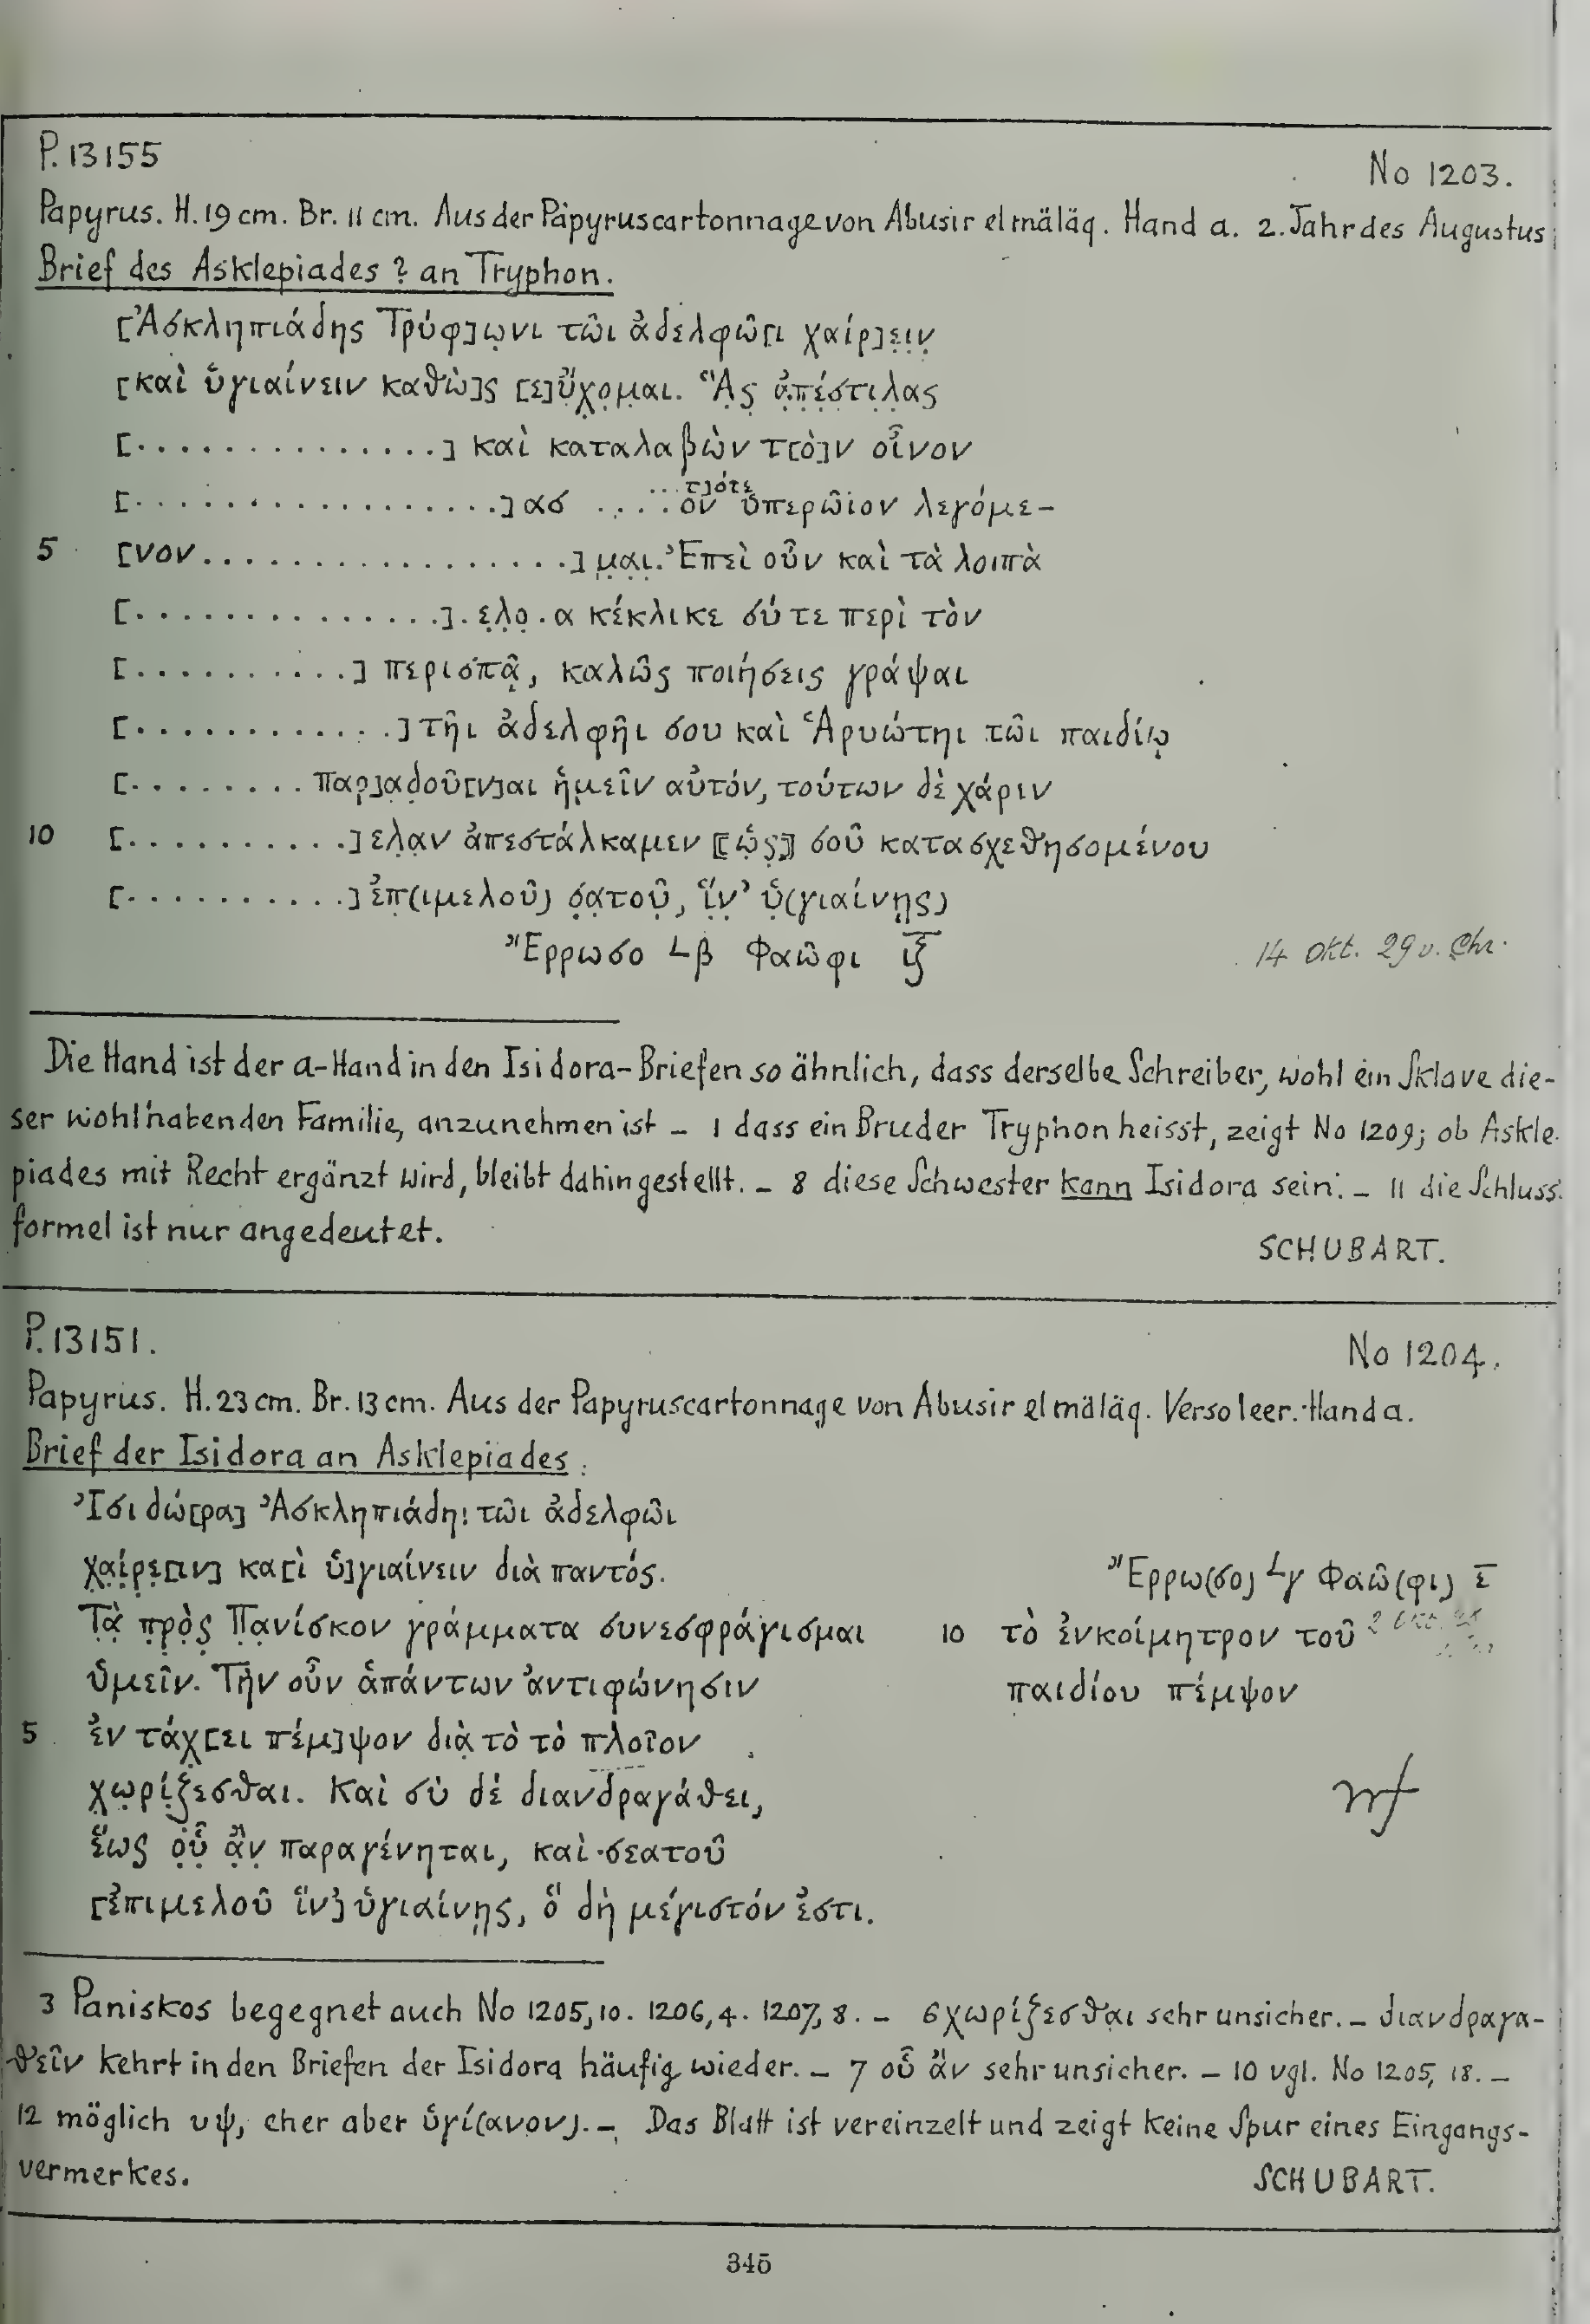 P. 13155
No 1203.
Papyrus. H. 19 cm. Br. 11 cm. Aus der Papyruscartonnage von Abusir el mäläq. Hand a. 2. Jahr des Augustus
Brief des Asklepiades ? an Tryphon.
[Ἀσκληπιάδης Τρύφ]ω̣νι τῶι ἀδελφῶ[ι χαίρ]ε̣ι̣ν̣
[καὶ ὑγιαίνειν καθὼ]ς [ε]ὔ̣χ̣ο̣μ̣αι. Ἃ̣ς ἀ̣π̣έ̣σ̣τ̣ι̣λ̣ας
[..............] καὶ καταλαβὼν τ[ὸ]ν οἶνον
...τ]ότε
[.................]ασ ....ον ὑπερῶιον λεγόμε-
5 [νον.................]μ̣α̣ι̣. Ἐπεὶ οὖν καὶ τὰ λοιπὰ
[..............]. ε̣λ̣ο̣.α κέκλικε σύ τε περὶ τὸν
[..........] περισπᾷ̣, καλῶς ποιήσεις γράψαι
[............]τῆι ἀδελφῆι σου καὶ Ἁρυώτηι τῶι παιδίῳ
[........ παρ̣]αδ̣οῦ[ν]αι ἡ̣μεῖν αὐτόν, τούτων δὲ χάριν
10 [..........]ελ̣α̣ν ἀπεστάλκαμεν ⟦ὡ̣ς̣⟧ σοῦ κατασχεθησομένου
[..........]ἐπ̣(ιμελοῦ) σ̣α̣τοῦ̣, ἵ̣ν̣’ ὑ̣(γιαίνῃς)
Ἔρρωσο Lβ Φαῶφι ιζ̅
14 Okt. 29 v. Chr.
Die Hand ist der a-Hand in den Isidora-Briefen so ähnlich, dass derselbe Schreiber, wohl ein Sklave die-
ser wohlhabenden Familie, anzunehmen ist – 1 dass ein Bruder Tryphon heisst, zeigt No 1209; ob Askle-
piades mit Recht ergänzt wird, bleibt dahingestellt. – 8 diese Schwester kann Isidora sein. – 11 die Schluss-
formel ist nur angedeutet.
SCHUBART.
P. 13151.
No 1204.
Papyrus. H. 23 cm. Br. 13 cm. Aus der Papyruscartonnage von Abusir el mäläq. Verso leer. Hand a.
Brief der Isidora an Asklepiades.
Ἰσιδώ[ρα] Ἀσκληπιάδηι τῶι ἀδελφῶι
χ̣α̣ί̣ρ̣ε̣[ιν] κα[ὶ ὑ]γιαίνειν διὰ παντός.
Τ̣ὰ̣ π̣ρ̣ὸ̣ς̣ Π̣α̣νίσκον γράμματα συνεσφράγισμαι
ὑμεῖν. Τὴν οὖν ἁπάντων ἀντιφώνησιν
5 ἐν τάχ̣[ει πέμ]ψον διὰ̣ τὸ τὸ πλοῖον
χ̣ω̣ρί̣ζ̣εσθαι. Καὶ σὺ δὲ διανδραγάθει,
ἕως ο̣ὗ̣ ἂ̣ν̣ παραγένηται, καὶ σεατοῦ
[ἐπιμελοῦ ἵν’] ὑγιαίνῃς, ὃ δὴ μέγιστόν ἐστι.
Ἔρρω(σο) Lγ Φαῶ(φι) ε̅
10 τὸ ἐνκοίμητρον τοῦ
παιδίου πέμψον
3 Paniskos begegnet auch No 1205,10. 1206,4. 1207,8. – 6 χωρίζεσθαι sehr unsicher. – διανδραγα-
θεῖν kehrt in den Briefen der Isidora häufig wieder. – 7 οὗ ἂν sehr unsicher. – 10 vgl. No 1205, 18. –
12 möglich υψ, eher aber ὑγί(ανον). – Das Blatt ist vereinzelt und zeigt keine Spur eines Eingangs-
vermerkes.
SCHUBART.
345